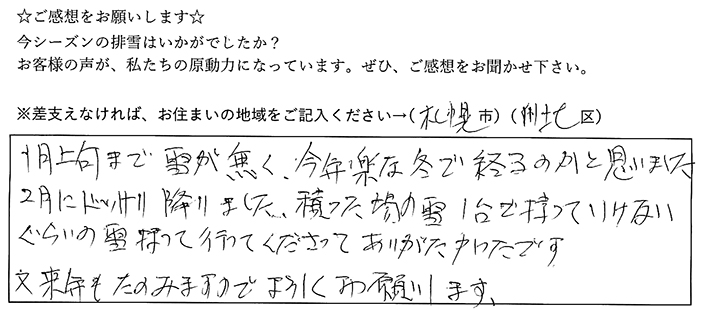 ☆ご感想をお願いします☆
今シーズンの排雪はいかがでしたか？
お客様の声が、私たちの原動力になっています。ぜひ、ご感想をお聞かせ下さい。
※差支えなければ、お住まいの地域をご記入ください→(札幌市) (北区)
1月上旬まで雪が無く、今年楽な冬で終るのかと思いました
2月にドッサリ降りました、積った場の雪1台で持っていけない
ぐらいの雪持って行ってくださってありがたかったです
又来年もたのみますのでよろしくお願いします、